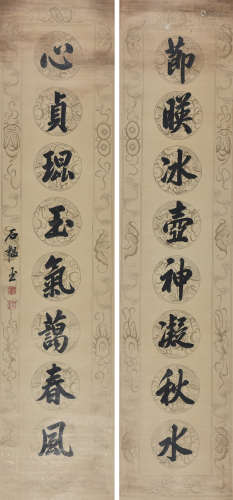 節暎冰壺神凝秋水
心貞琨玉氣藹春風
石韞玉